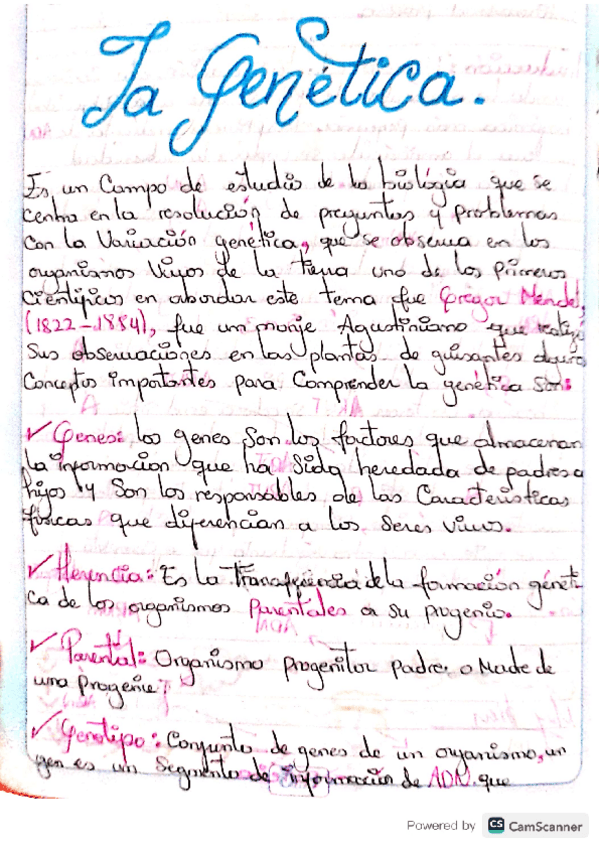 La Genética.
Es un Campo de estudio de la biología que se
centra en la resolución de preguntas y problemas
con la Variación genética, que se observa en los
organismos Vivos de la tierra uno de los primeros
Científicos en abordar este tema fue Gregor Mendel,
(1822-1884), fue un monje Agustiniano que realizó
Sus observaciones en las plantas de guisantes alguno
Conceptos importantes para Comprender la genética son:
✓ Genes: los genes Son los factores que almacenan
la información que ha Sido heredada de padres a
hijos y Son los responsables de las Características
físicas que diferencian a los Seres vivos.
✓ Herencia: Es la Transferencia de la formación genéti-
ca de los organismos Parentales a su progenie.
✓ Parental: Organismo progenitor padre o Madre de
una Progenie
✓ Genotipo: Conjunto de genes de un organismo, un
gen es un Segmento de información de ADN que
Powered by CS CamScanner